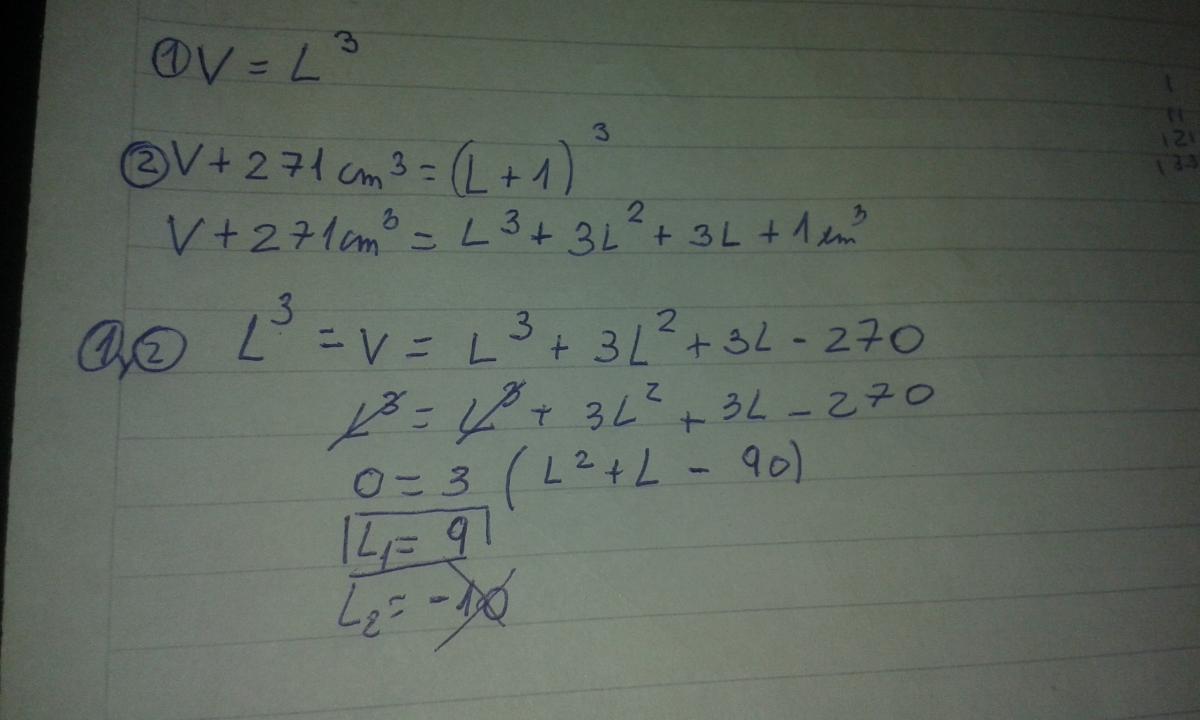 ① V = L³
② V + 271 cm³ = (L + 1)³
V + 271 cm³ = L³ + 3L² + 3L + 1 cm³
①,② L³ = V = L³ + 3L² + 3L - 270
L³ = L³ + 3L² + 3L - 270
0 = 3 (L² + L - 90)
L₁ = 9
L₂ = -10
1
11
121
133